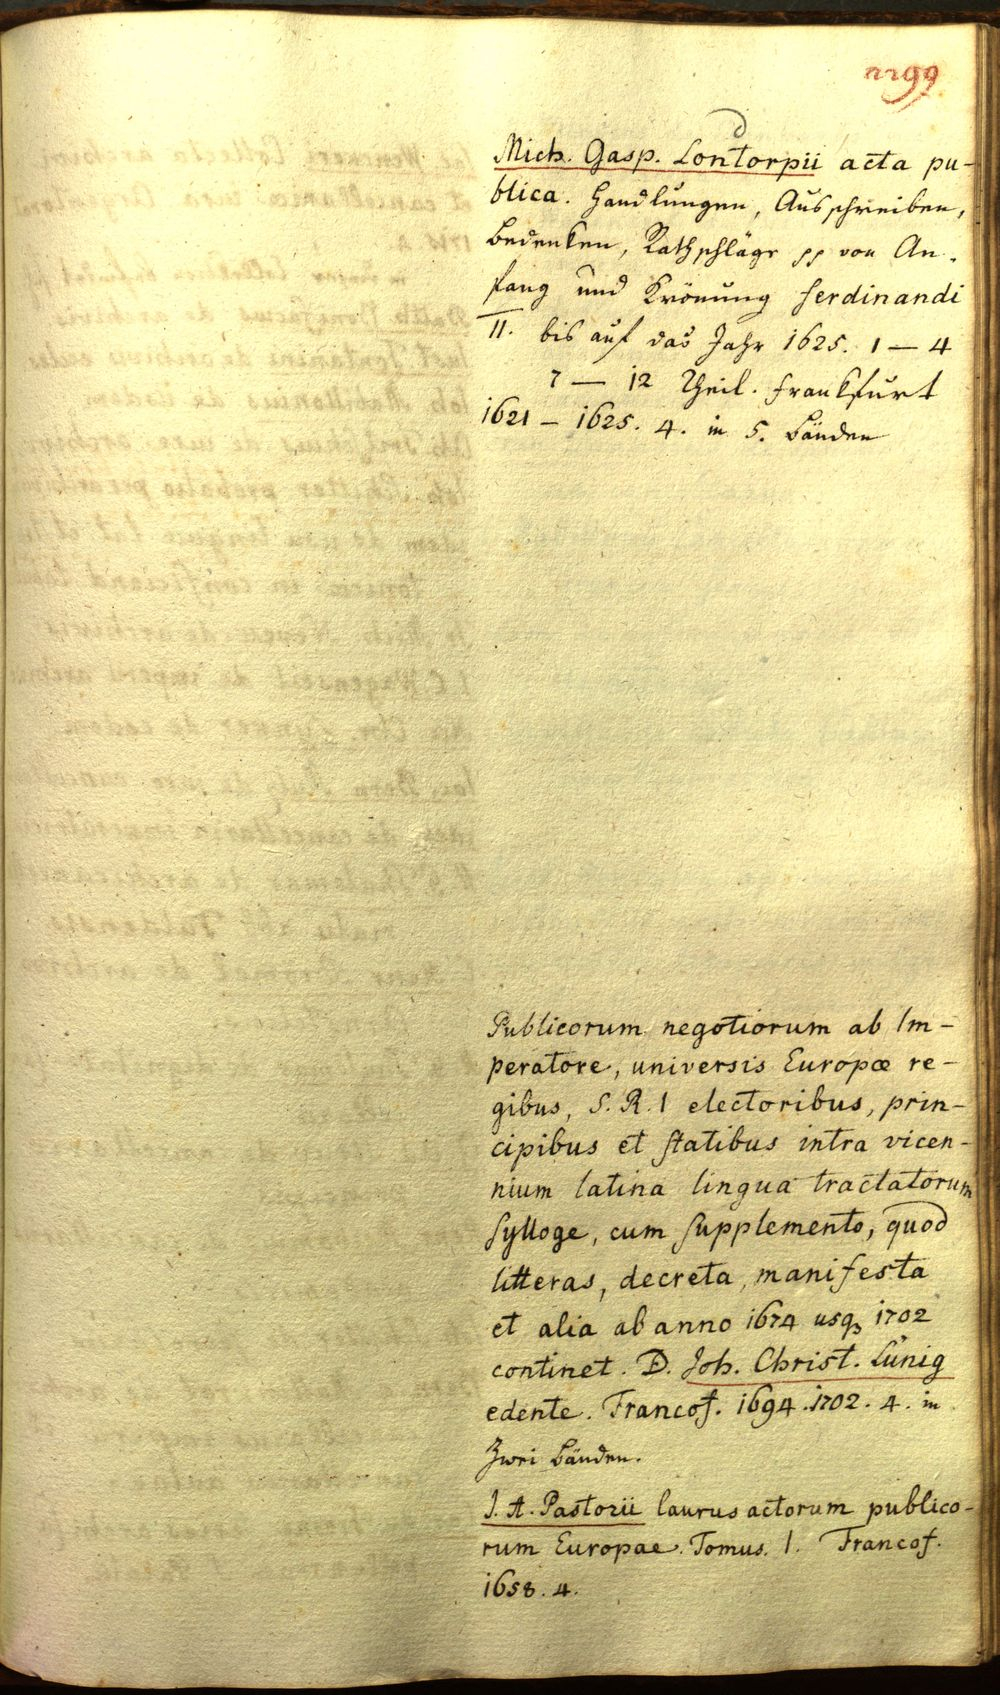 2299
Mich. Gasp. Londorpii acta pu-
blica. Handlungen, Ausschreiben,
Bedenken, Rathschläge pp von An-
fang und Krönung Ferdinandi
II. bis auf das Jahr 1625. 1 — 4
7 — 12 Theil. Frankfurt
1621 — 1625. 4. in 5. Bänden
Publicorum negotiorum ab Im-
peratore, universis Europæ re-
gibus, S. R. I electoribus, prin-
cipibus et statibus intra vicen-
nium latina lingua tractatorum
sylloge, cum supplemento, quod
litteras, decreta, manifesta
et alia ab anno 1674 usq 1702
continet. D. Joh. Christ. Lünig
edente. Francof. 1694. 1702. 4. in
zwei Bänden.
J. A. Pastorii laurus actorum publico-
rum Europae. Tomus. I. Francof.
1658. 4.